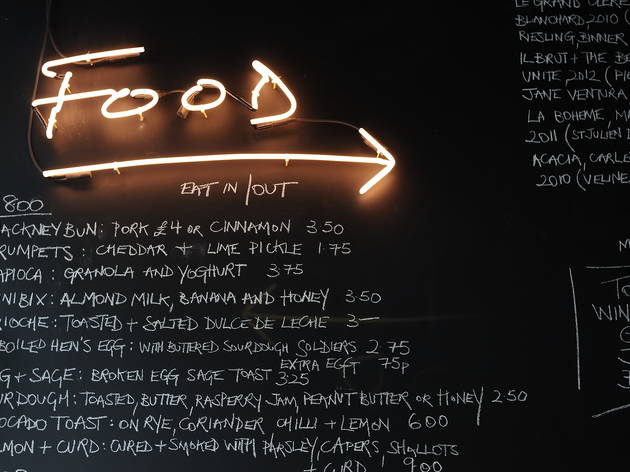 FOOD
EAT IN/OUT
800
ACKNEY BUN: PORK £4 OR CINNAMON 3.50
RUMPETS: CHEDDAR + LIME PICKLE 1.75
APIOCA: GRANOLA AND YOGHURT 3.75
NIBIX: ALMOND MILK, BANANA AND HONEY 3.50
RIOCHE: TOASTED + SALTED DULCE DE LECHE 3—
BOILED HEN'S EGG: WITH BUTTERED SOURDOUGH SOLDIERS 2.75
EXTRA EGG 75p
G + SAGE: BROKEN EGG SAGE TOAST 3.25
URDOUGH: TOASTED, BUTTER, RASPERRY JAM, PEANUT BUTTER OR HONEY 2.50
OCADO TOAST: ON RYE, CORIANDER CHILLI + LEMON 6.00
LMON + CURD: CURED + SMOKED WITH PARSLEY, CAPERS, SHALLOTS
+ CURD 9.00
LE GRAND CLERE
BLANCHARD, 2010 (
RIESLING, BINNER
IL BRUT + THE BE
UNITE, 2012 (PIC
JANE VENTURA
LA BOHEME, MA
2011 (ST JULIEN D
ACACIA, CARLE
2010 (VELINE
M
TO
WIN